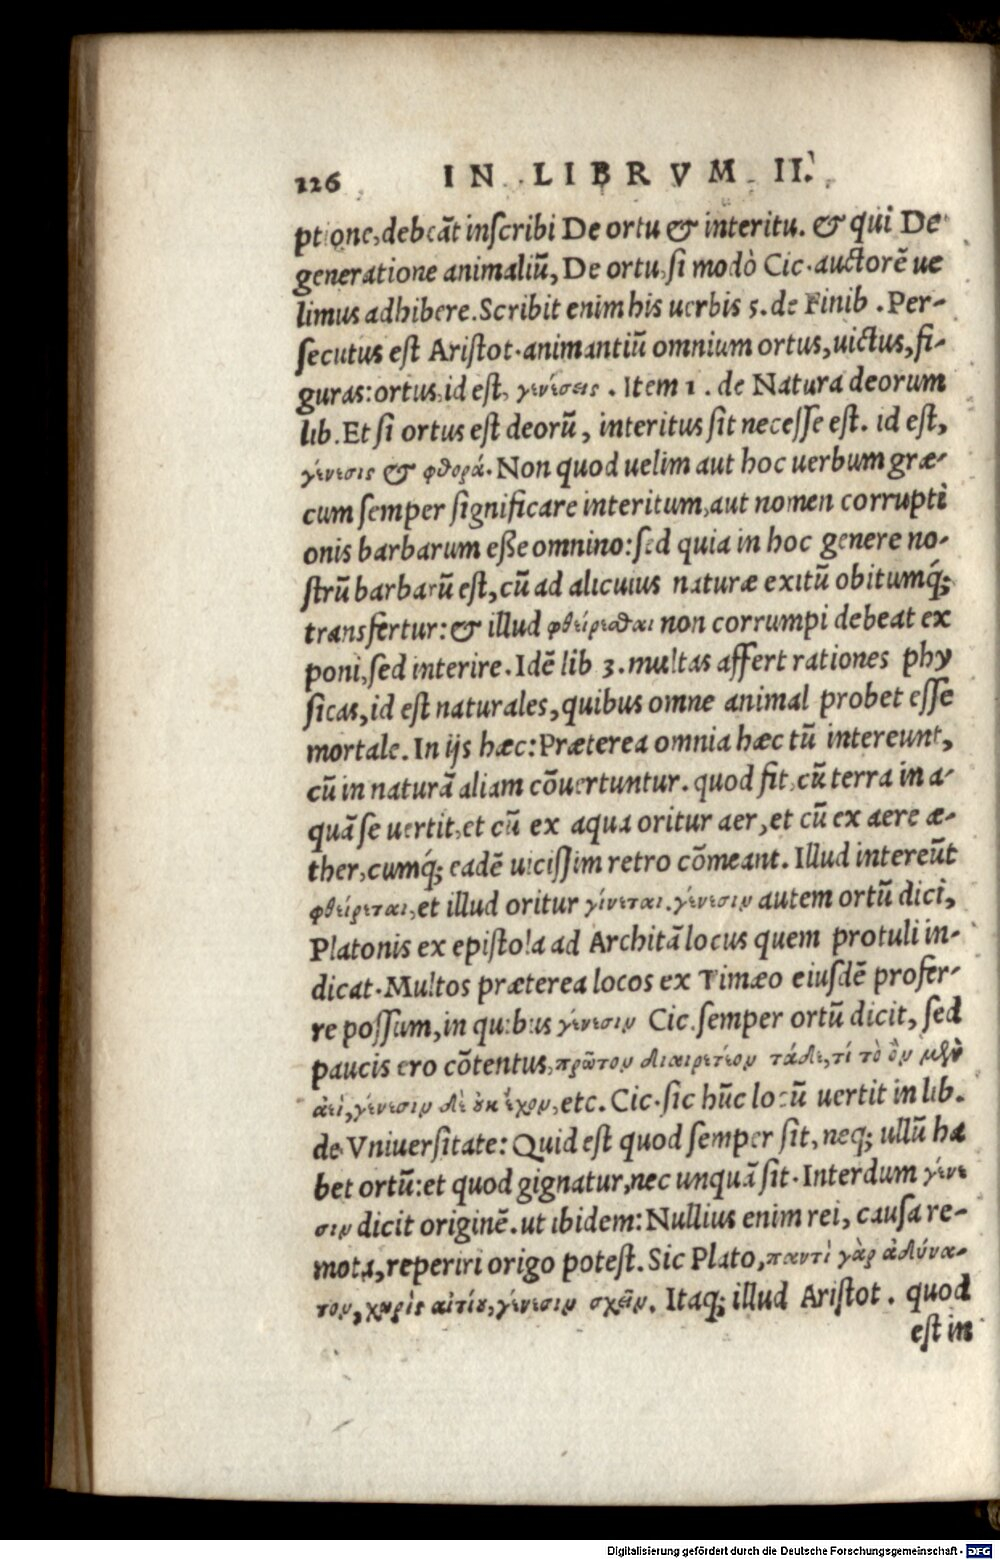 126 IN LIBRVM II.
ptione, debeāt inſcribi De ortu & interitu. & qui De
generatione animaliū, De ortu, ſi modò Cic. auctorē ue
limus adhibere. Scribit enim his uerbis 5. de Finib. Per-
ſecutus eſt Ariſtot. animantiū omnium ortus, uictus, fi-
guras: ortus, id eſt, γενέσεις. Item 1. de Natura deorum
lib. Et ſi ortus eſt deorū, interitus ſit neceſſe eſt. id eſt,
γένεσις & φθορά. Non quod uelim aut hoc uerbum græ-
cum ſemper ſignificare interitum, aut nomen corrupti
onis barbarum eße omnino: ſed quia in hoc genere no-
ſtrū barbarū eſt, cū ad alicuius naturæ exitū obitumq́;
transfertur: & illud φθείρεσθαι non corrumpi debeat ex
poni, ſed interire. Idē lib 3. multas affert rationes phy
ſicas, id eſt naturales, quibus omne animal probet eſſe
mortale. In ijs hæc: Præterea omnia hæc tū intereunt,
cū in naturā aliam cōuertuntur. quod fit, cū terra in a-
quā ſe uertit, et cū ex aqua oritur aer, et cū ex aere æ-
ther, cumq́; eadē uiciſſim retro cōmeant. Illud intereūt
φθείρεται, et illud oritur γίνεται. γένεσιν autem ortū dici,
Platonis ex epiſtola ad Architā locus quem protuli in-
dicat. Multos præterea locos ex Timæo eiuſdē profer-
re poſſum, in quibus γένεσιν Cic. ſemper ortū dicit, ſed
paucis ero cōtentus, πρῶτον διαιρετέον τάδε, τί τὸ ὂν μὲν
ἀεὶ, γένεσιν δὲ οὐκ ἔχον, etc. Cic. ſic hūc locū uertit in lib.
de Vniuerſitate: Quid eſt quod ſemper ſit, neq; ullū ha
bet ortū: et quod gignatur, nec unquā ſit. Interdum γένε
σιν dicit originē. ut ibidem: Nullius enim rei, cauſa re-
mota, reperiri origo poteſt. Sic Plato, παντὶ γὰρ ἀδύνα-
τον, χωρὶς αἰτίου, γένεσιν σχεῖν. Itaq; illud Ariſtot. quod
eſt in
Digitalisierung gefördert durch die Deutsche Forschungsgemeinschaft - DFG